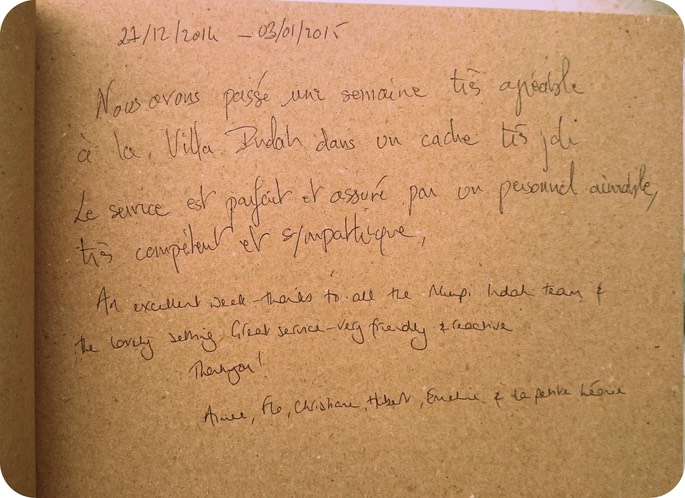 27/12/2014 - 03/01/2015
Nous avons passé une semaine très agréable
à la Villa Indah dans un cadre très joli
Le service est parfait et assuré par un personnel aimable,
très compétent et sympathique,
An excellent week - thanks to all the Indah team &
the lovely setting. Great service - very friendly & reactive
Thankyou!
Aimee, Flo, Christiane, Hubert, & la petite